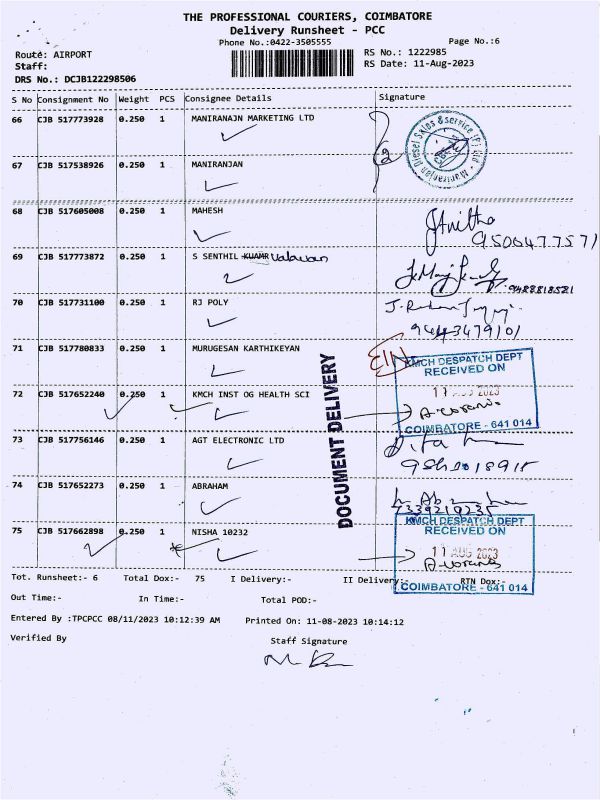 THE PROFESSIONAL COURIERS, COIMBATORE
Delivery Runsheet - PCC
Phone No.:0422-3505555 Page No.:6
Route: AIRPORT RS No.: 1222985
Staff: RS Date: 11-Aug-2023
DRS No.: DCJB122298506
S No Consignment No Weight PCS Consignee Details Signature
66 CJB 517773928 0.250 1 MANIRANAJN MARKETING LTD
67 CJB 517538926 0.250 1 MANIRANJAN
68 CJB 517605008 0.250 1 MAHESH
9500477571
69 CJB 517773872 0.250 1 S SENTHIL KUAMR Valavan
70 CJB 517731100 0.250 1 RJ POLY
9443479101
71 CJB 517780833 0.250 1 MURUGESAN KARTHIKEYAN
KMCH DESPATCH DEPT
RECEIVED ON
72 CJB 517652240 0.250 1 KMCH INST OG HEALTH SCI
11 AUG 2023
COIMBATORE - 641 014
DOCUMENT DELIVERY
73 CJB 517756146 0.250 1 AGT ELECTRONIC LTD
74 CJB 517652273 0.250 1 ABRAHAM
KMCH DESPATCH DEPT
RECEIVED ON
75 CJB 517662898 0.250 1 NISHA 10232
11 AUG 2023
COIMBATORE - 641 014
Tot. Runsheet:- 6 Total Dox:- 75 I Delivery:- II Delivery:- RTN Dox:-
Out Time:- In Time:- Total POD:-
Entered By :TPCPCC 08/11/2023 10:12:39 AM Printed On: 11-08-2023 10:14:12
Verified By Staff Signature